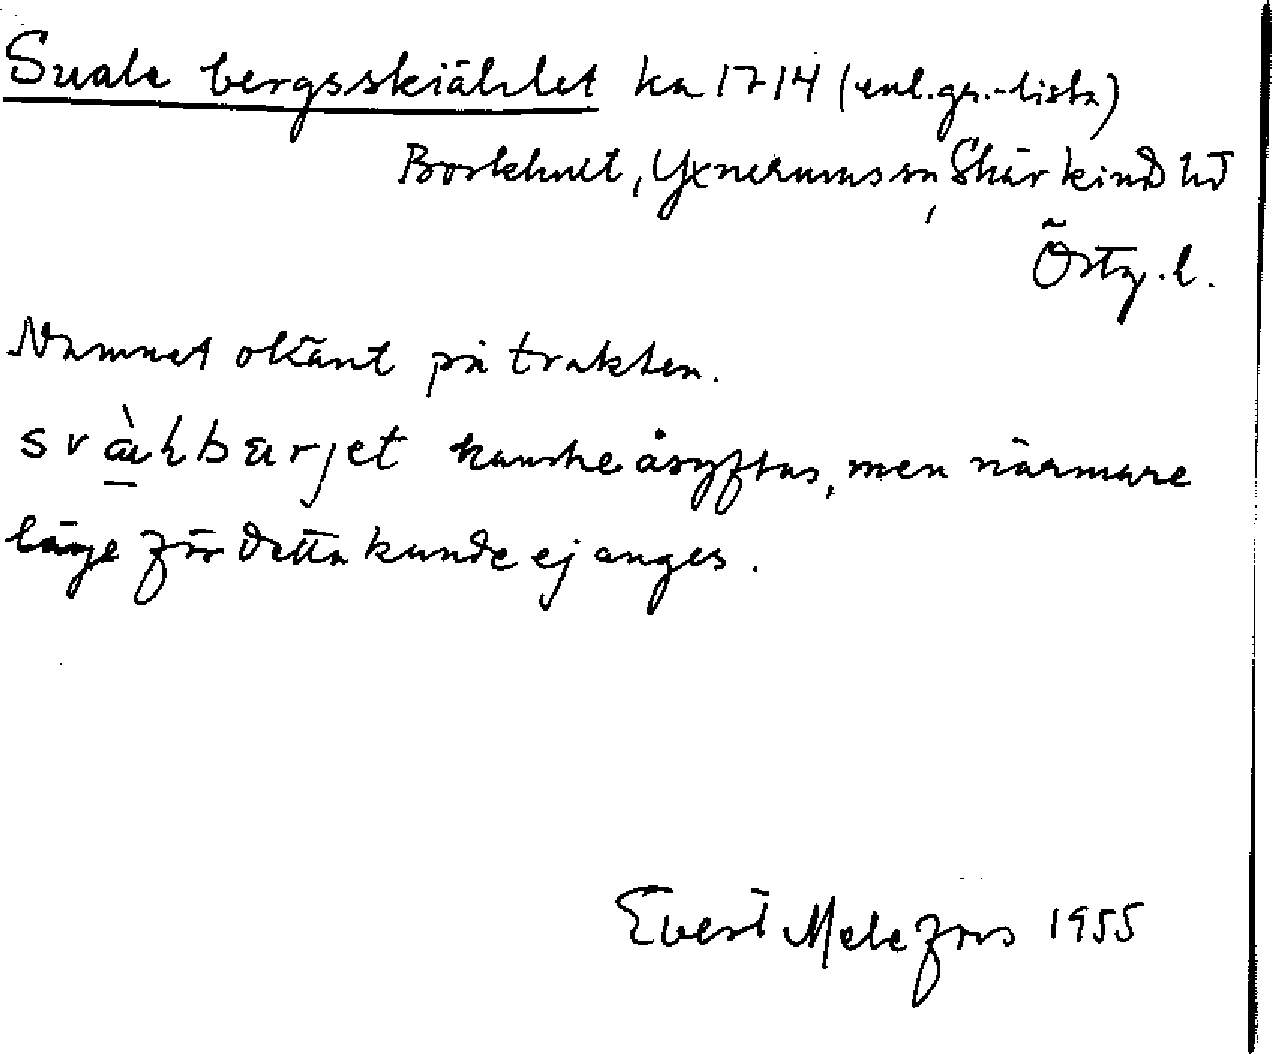 Suale bergsskiählet ka 1714 (enl. gr.-lista)
Borkhult, Yxnerums sn, Skärkind hd
Östg. l.
Namnet okänt på trakten.
svàlbærjet kanske åsyftas, men närmare
läge för detta kunde ej anges.
Evert Melefors 1955